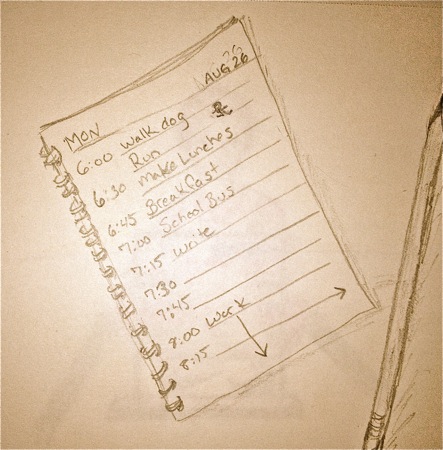 MON AUG 26
6:00 walk dog
Run
6:30 Make Lunches
6:45 Breakfast
7:00 School Bus
7:15 write
7:30
7:45
8:00 Work
8:15